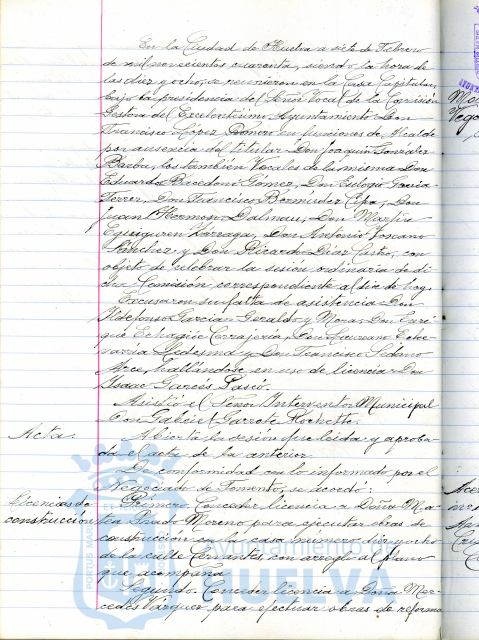 En la Ciudad de Huelva a siete de Febrero
de mil novecientos cuarenta, siendo la hora de
las diez y ocho, se reunieron en la Casa Capitular,
bajo la presidencia del Señor Vocal de la Comisión
Gestora del Excelentísimo Ayuntamiento Don
Francisco López Romero en funciones de Alcalde
por ausencia del titular Don Joaquín González
Barba, los también Vocales de la misma Don
Eduardo Gómez, Don Eulogio García
Ferrer, Don Francisco Bermúdez Don
Juan Hermoso Dalmau, Don Martín
Don Antonio Toscano
Sánchez y Don Ricardo Díaz Castro, con
objeto de celebrar la sesión ordinaria de di-
cha Comisión correspondiente al día de hoy.
Excusaron su falta de asistencia Don
Ildefonso García Geraldo y Mora, Don Enri-
que Echagüe Don Eche-
varría Ledesma y Don Francisco
hallándose en uso de licencia Don
Isaac Garcés
Asistió el Señor Interventor Municipal
Don Gabriel Garrote
Acta. Abierta la sesión fué leída y aproba-
da el acta de la anterior.
De conformidad con lo informado por el
Negociado de Fomento, se acordó:
Licencias de Primero. Conceder licencia a Doña Ma-
construcción Prado Moreno para ejecutar obras de
construcción en la casa número diez y ocho
de la calle Cervantes, con arreglo al plano
que acompaña
Segundo. Conceder licencia a Doña Mer-
cedes Vázquez para efectuar obras de reforma
Ayuntamiento de
HUELVA